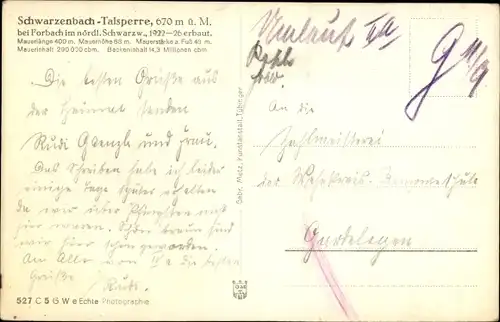 Schwarzenbach-Talsperre, 670 m ü. M.
bei Forbach im nördl. Schwarzw., 1922—26 erbaut.
Mauerlänge 400 m. Mauerhöhe 65 m. Mauerstärke a. Fuß 40 m.
Mauerinhalt 290 000 cbm. Beckeninhalt 14,3 Millionen cbm
Die besten Grüße aus
der Heimat senden
Rudi und Frau.
Das Schreiben habe ich leider
einige Tage später erhalten
da wir über Pfingsten
waren. Schön braun sind
wir hier schon geworden.
An Alle die besten
Grüße
Rudi.
527 C 5 G W e Echte Photographie
Gebr. Metz, Kunstanstalt, Tübingen
An die
Zahlmeisterei
der
Gardelegen